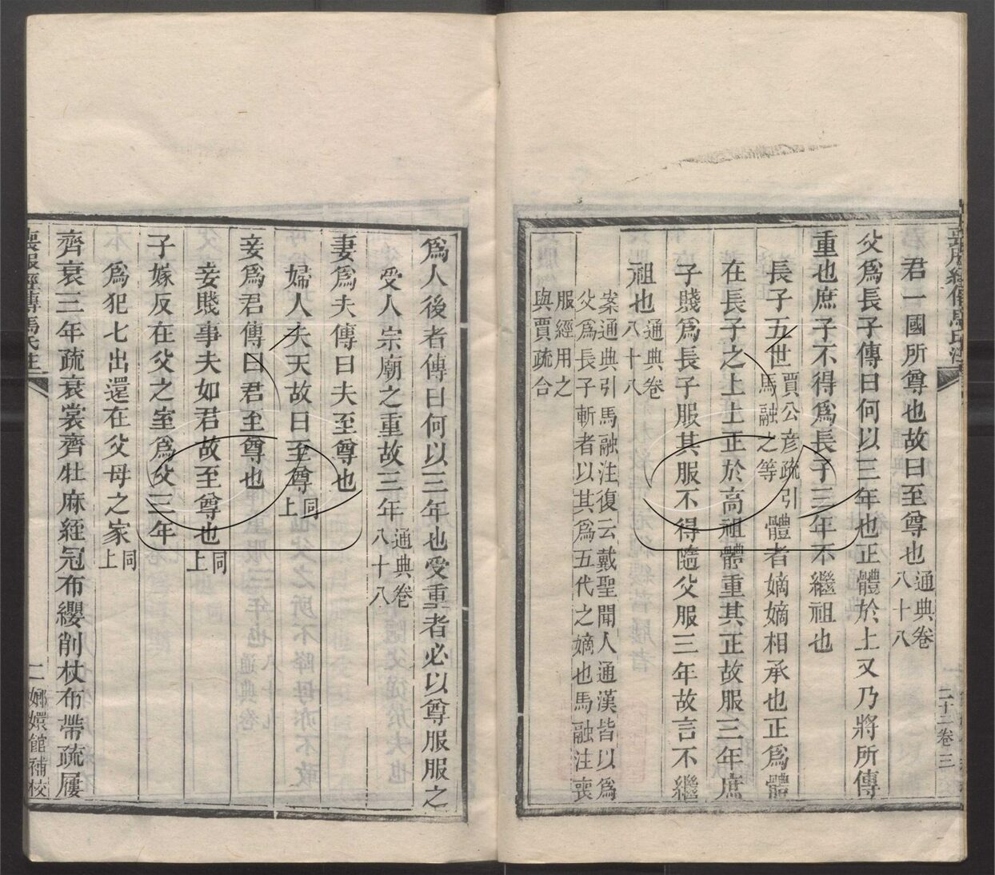 君一國所尊也故曰至尊也通典卷八十八
父爲長子傳曰何以三年也正體於上又乃將所傳
重也庶子不得爲長子三年不繼祖也
長子五世賈公彥疏引馬融之等體者嫡嫡相承也正爲體
在長子之上上正於高祖體重其正故服三年庶
子賤爲長子服其服不得隨父服三年故言不繼
祖也通典卷八十八
案通典引馬融注復云戴聖聞人通漢皆以爲
父爲長子斬者以其爲五代之嫡也馬融注喪
服經用之
與賈疏合
爲人後者傳曰何以三年也受重者必以尊服服之
受人宗廟之重故三年通典卷八十八
妻爲夫傳曰夫至尊也
婦人夫天故曰至尊同上
妾爲君傳曰君至尊也
妾賤事夫如君故至尊也同上
子嫁反在父之室爲父三年
爲犯七出還在父母之家同上
齊衰三年疏衰裳齊牡麻絰冠布纓削杖布帶疏屨
喪服經傳馬氏注
二
嫏嬛館補校